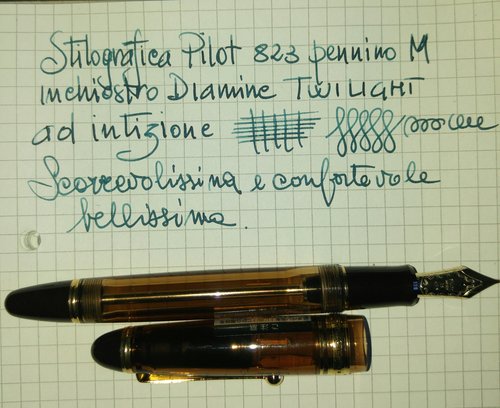 Stilografica Pilot 823 pennino M
inchiostro Diamine TWILIGHT
ad intizione
Scorrevolissima e confortevole
bellissima.